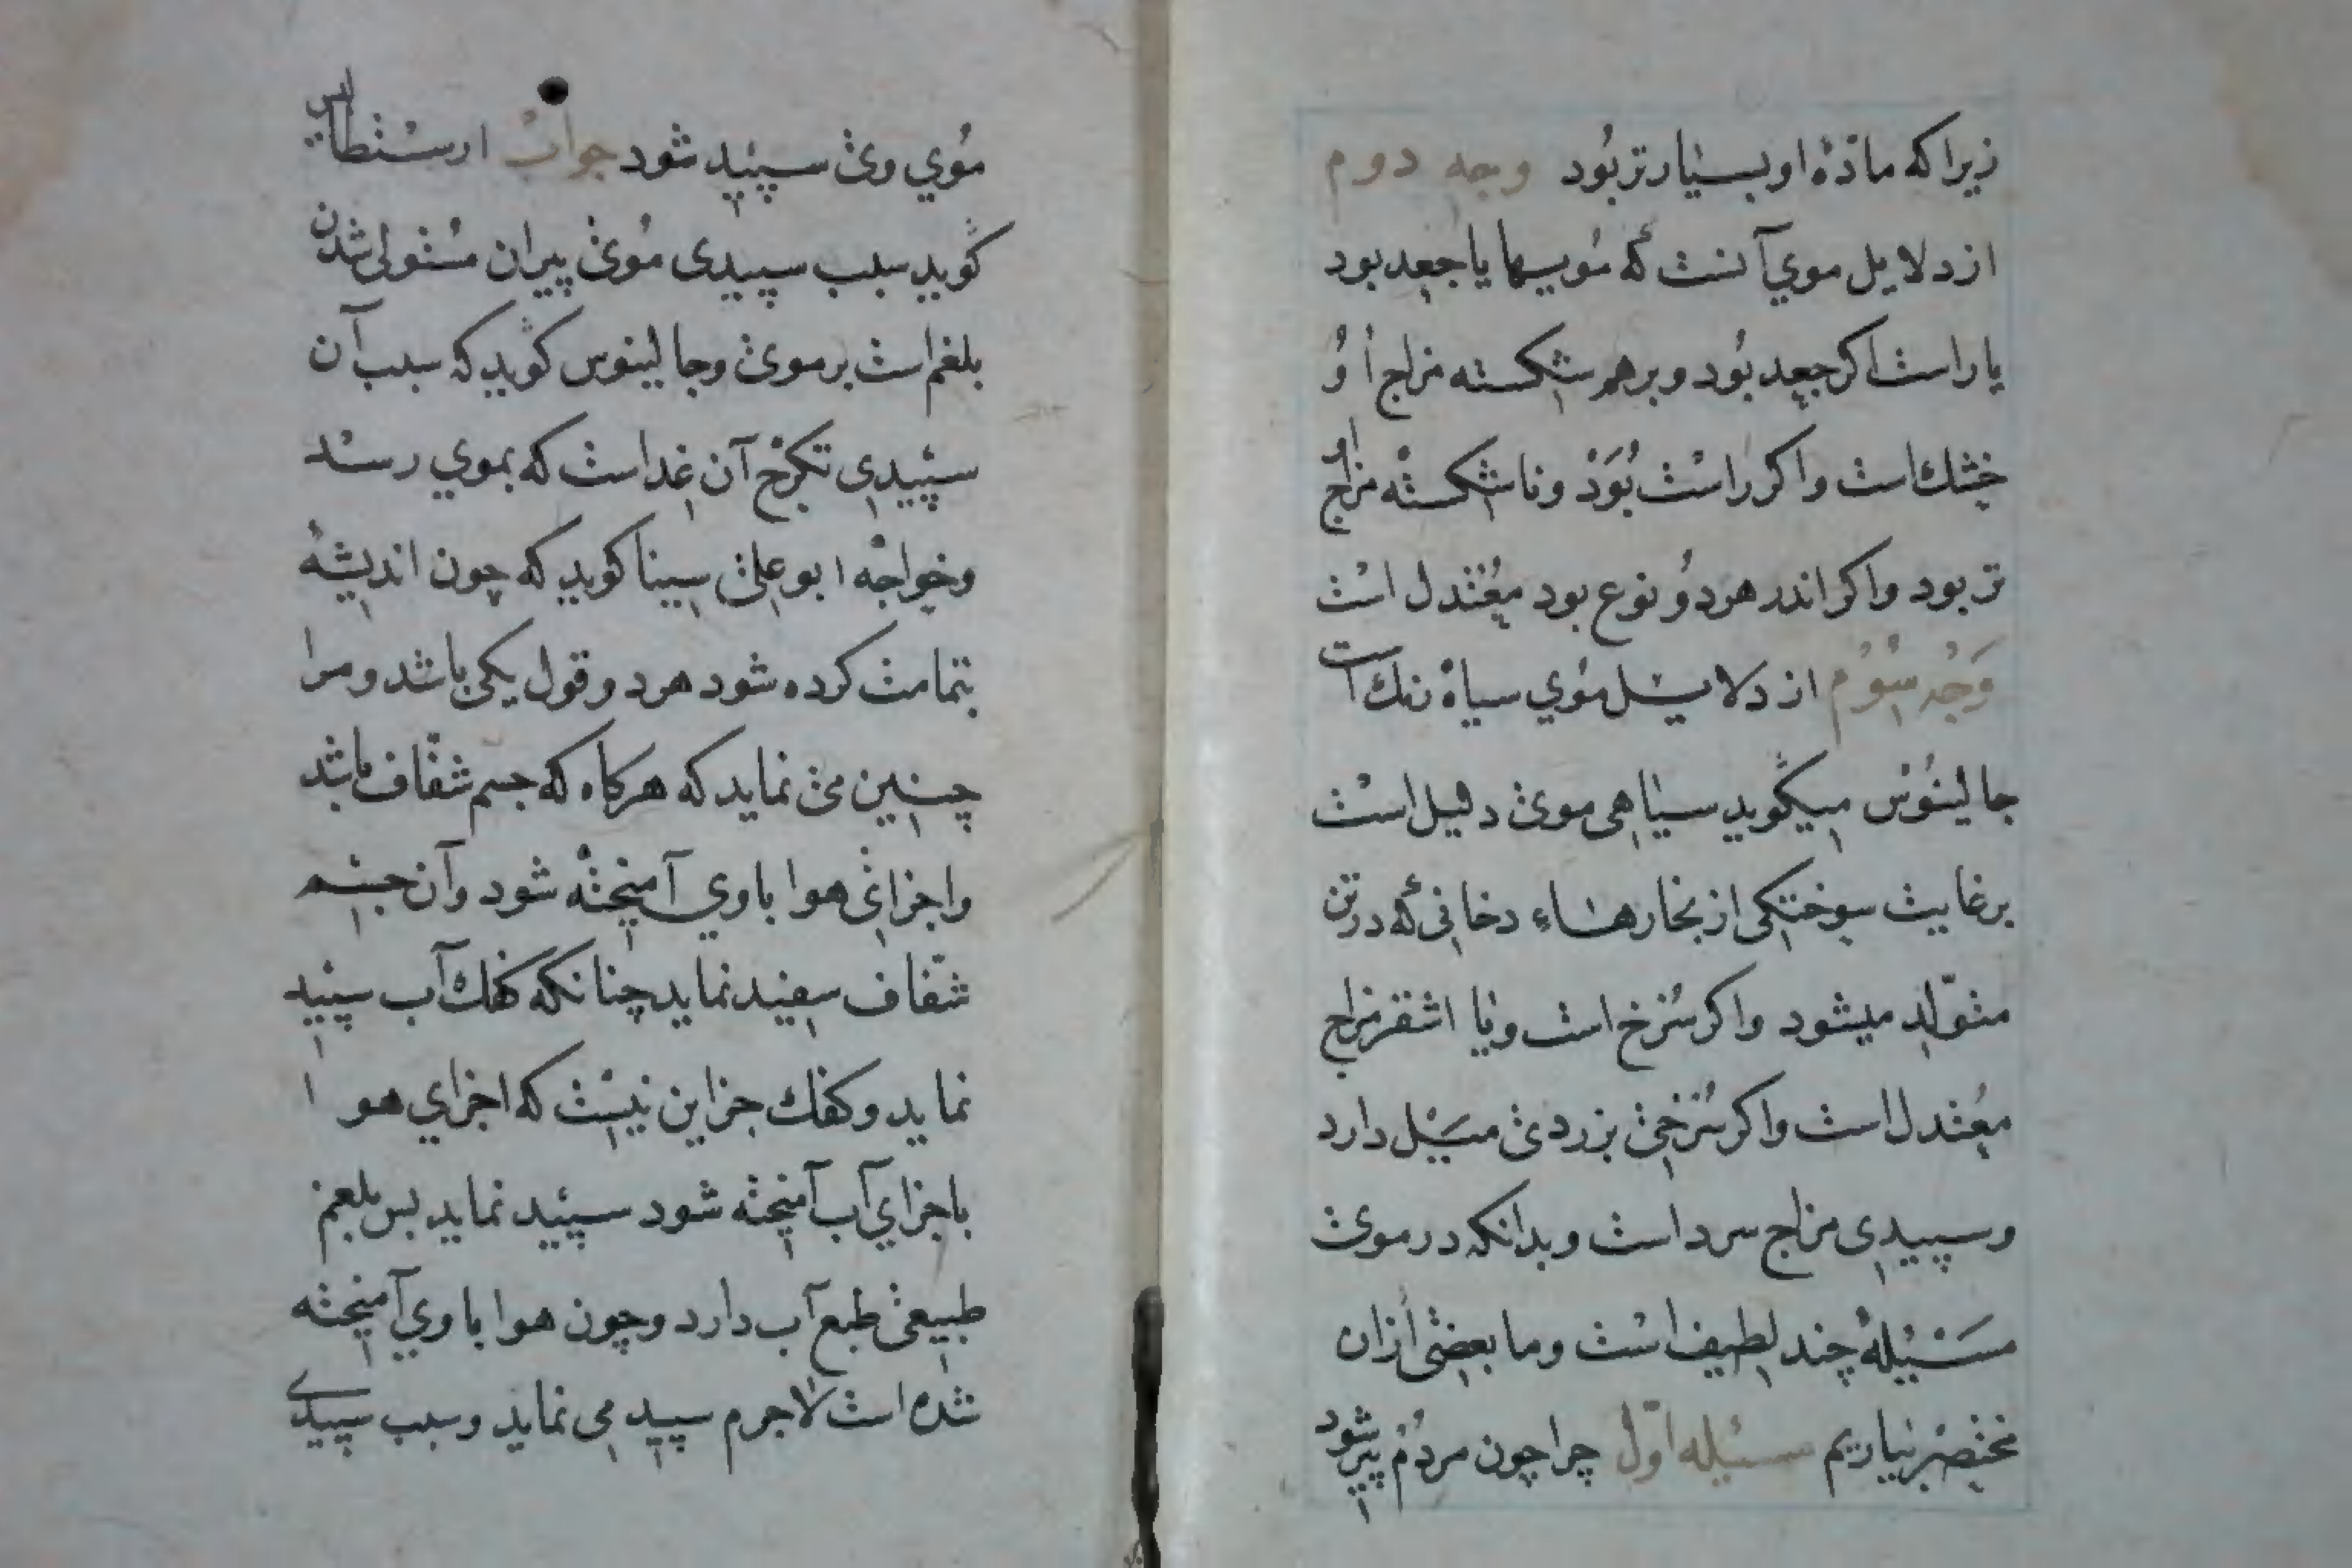 زیرا که مادۀ او بسیار تر بود وجه دوم
از دلایل موي آنست که مویها یا جعد بود
یا راست اکر جعد بود و برهم شکسته مزاج او
خشك است واکر راست بود و ناشکسته مزاج او
تر بود واکر اندر هر دو نوع بود معتدل است
وجه سوم از دلایل موي سیاه رنك است
جالینوس میگوید سیاهی موی دلیل است
بر غایت سوختکی از بخارهاء دخانی که در تن
متولد میشود واکر سرخ است ویا اشقر مزاج
معتدل است واکر سرخی بزردی میل دارد
وسپیدی مزاج سرد است وبدانکه در موی
مسئیلۀ چند لطیف است وما بعضی ازان
مختصر بیاریم مسئیله اول چرا چون مردم پیر شود
موي وی سپید شود جواب ارسطاطالیس
گوید سبب سپیدی موی پیران مستولی شدن
بلغم است بر موی وجالینوس گوید که سبب آن
سپیدی تکرخ آن غداست که بموي رسد
وخواجه ابو علی سینا کوید که چون اندیشه
بتمامت کرده شود هر دو قول یکی باشد ومرا
چنین می نماید که هرکاه که جسم شفاف باشد
واجزای هوا با وي آمیخته شود وآن جسم
شفاف سفید نماید چنانکه کفك آب سپید
نماید وکفك جز این نیست که اجزاي هوا
با جزاي آب آمیخته شود سپید نماید بس بلغم
طبیعی طبع آب دارد وچون هوا با وي آمیخته
شده است لاجرم سپید می نماید وسبب سپیدی